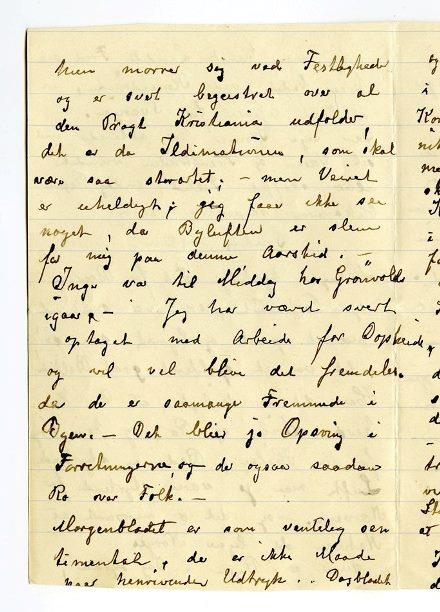 hun morrer sig ved Festligheder
og er svert begeistret over al
den Pragt Kristiania udfolder,
det er da Illuminationen, som skal
være saa storartet; – men Veiret
er uheldigt; jeg faar ikke see
noget, da Byluften er slem
for mig paa denne Aarstid. –
Inga var til Middag hos Grönvolds
igaar, – Jeg har været svert
optaget med Arbeide for
og vil vel blive det fremdeles.
da de er saamange Fremmede i
Byen. – Det blir jo Opsving i
Forretningerne, og de ogsaa saadan
Ro over Folk. –
Morgenbladet er som ventelig sen
timental, de er ikke Maade
paa henrivende Udtryk .. Dagbladet